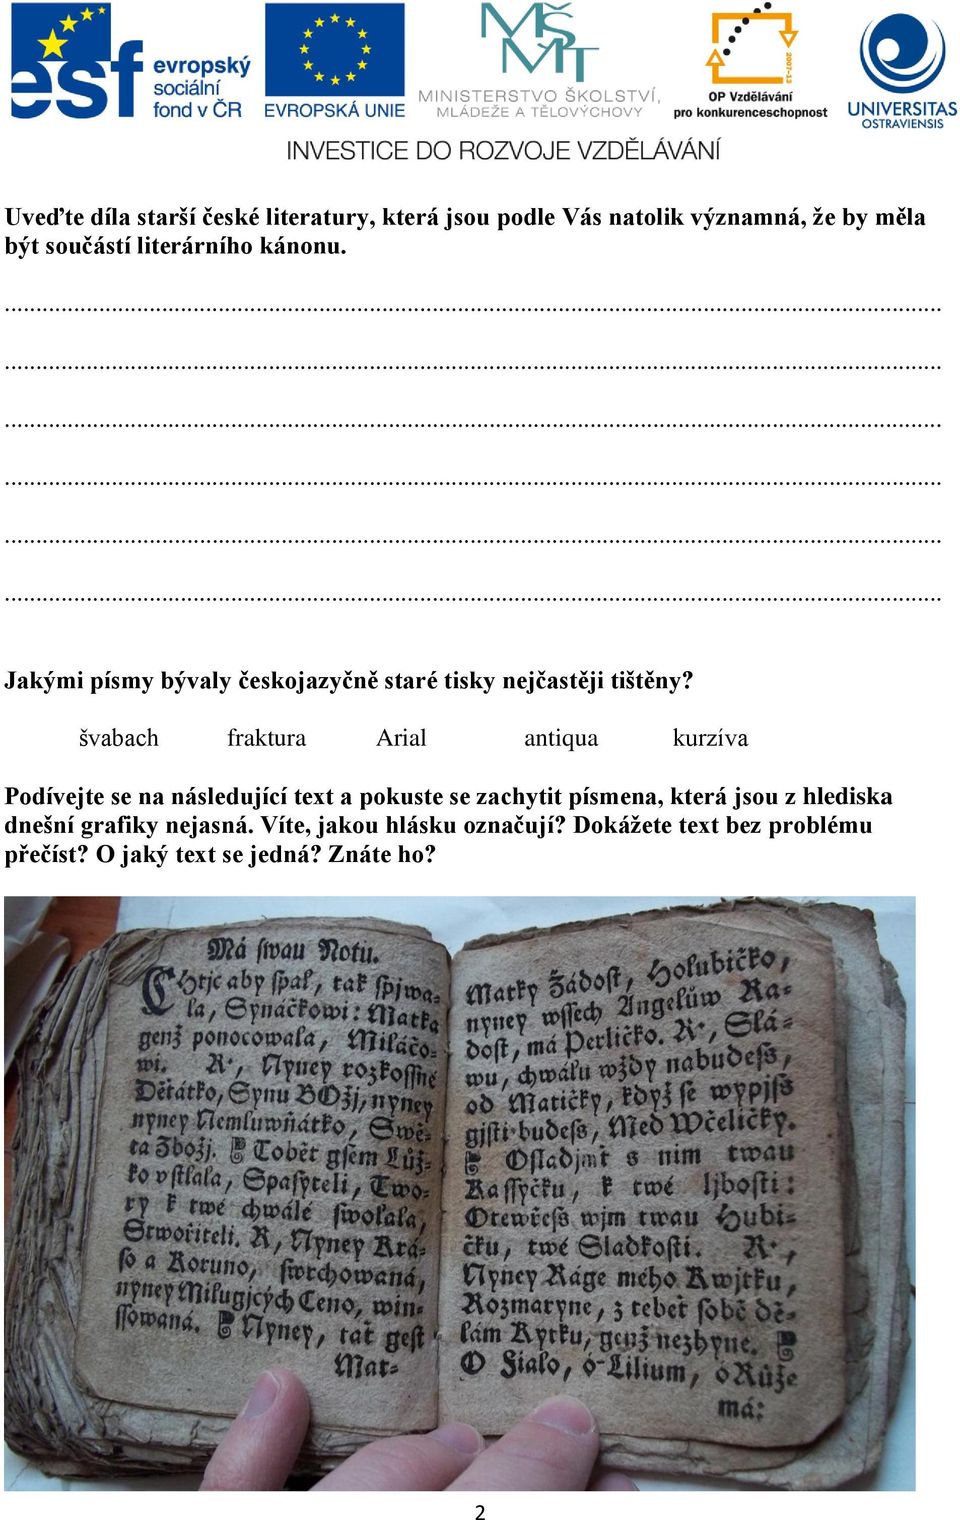 esf
evropský
sociální
fond v ČR
EVROPSKÁ UNIE
MŠ
MT
MINISTERSTVO ŠKOLSTVÍ,
MLÁDEŽE A TĚLOVÝCHOVY
2007-13
OP Vzdělávání
pro konkurenceschopnost
UNIVERSITAS
OSTRAVIENSIS
INVESTICE DO ROZVOJE VZDĚLÁVÁNÍ
Uveďte díla starší české literatury, která jsou podle Vás natolik významná, že by měla
být součástí literárního kánonu.
...
...
...
...
...
...
Jakými písmy bývaly českojazyčně staré tisky nejčastěji tištěny?
švabach fraktura Arial antiqua kurzíva
Podívejte se na následující text a pokuste se zachytit písmena, která jsou z hlediska
dnešní grafiky nejasná. Víte, jakou hlásku označují? Dokážete text bez problému
přečíst? O jaký text se jedná? Znáte ho?
Má ſwau Notu.
CHtjc aby ſpal, tak ſpjwa-
la, Synáčkowi: Matka
genž ponocowala, Miláčo-
wi. R., Nyney rozkoſſné
Děťátko, Synu BOžj, nyney
nyney Nemluwňátko, Swě-
ta Zbožj. Tobět gſem Lůž-
ko vſtlala, Spaſyteli, Two-
ry k twé chwále ſwolala,
Stwořiteli. R, Nyney Krá-
ſo a Koruno, ſwrchowaná,
nyney Milugjcých Ceno, win-
ſſowaná. Nyney, tať geſt
Mat-
Matky Žádoſt, Holubičko,
nyney wſſech Angelůw Ra-
doſt, má Perličko. R., Slá-
wu, chwálu wždy nabudeſs,
od Matičky, když ſe wypjſs
gjſti budeſs, Med Wčeličky.
Oſladjmť s nim twau
Kaſſyčku, k twé ljboſti:
Otewřeſs wjm twau Hubi-
čku, twé Sladkoſti. R.,
Nyney Ráge mého Kwjtku,
Rozmaryne, z tebeť ſobě dě-
lám Kytku, genž nezhyne.
O Fialo, ó Lilium, ó Růže
má:
2